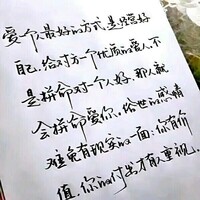 爱个人最好的方式,是经营好
自己,给对方一个优质的爱人,不
是拼命对一个人好,那人就
会拼命爱你。俗世的感情
难免有现实的一面:你有价
值,你的付出才有人重视。